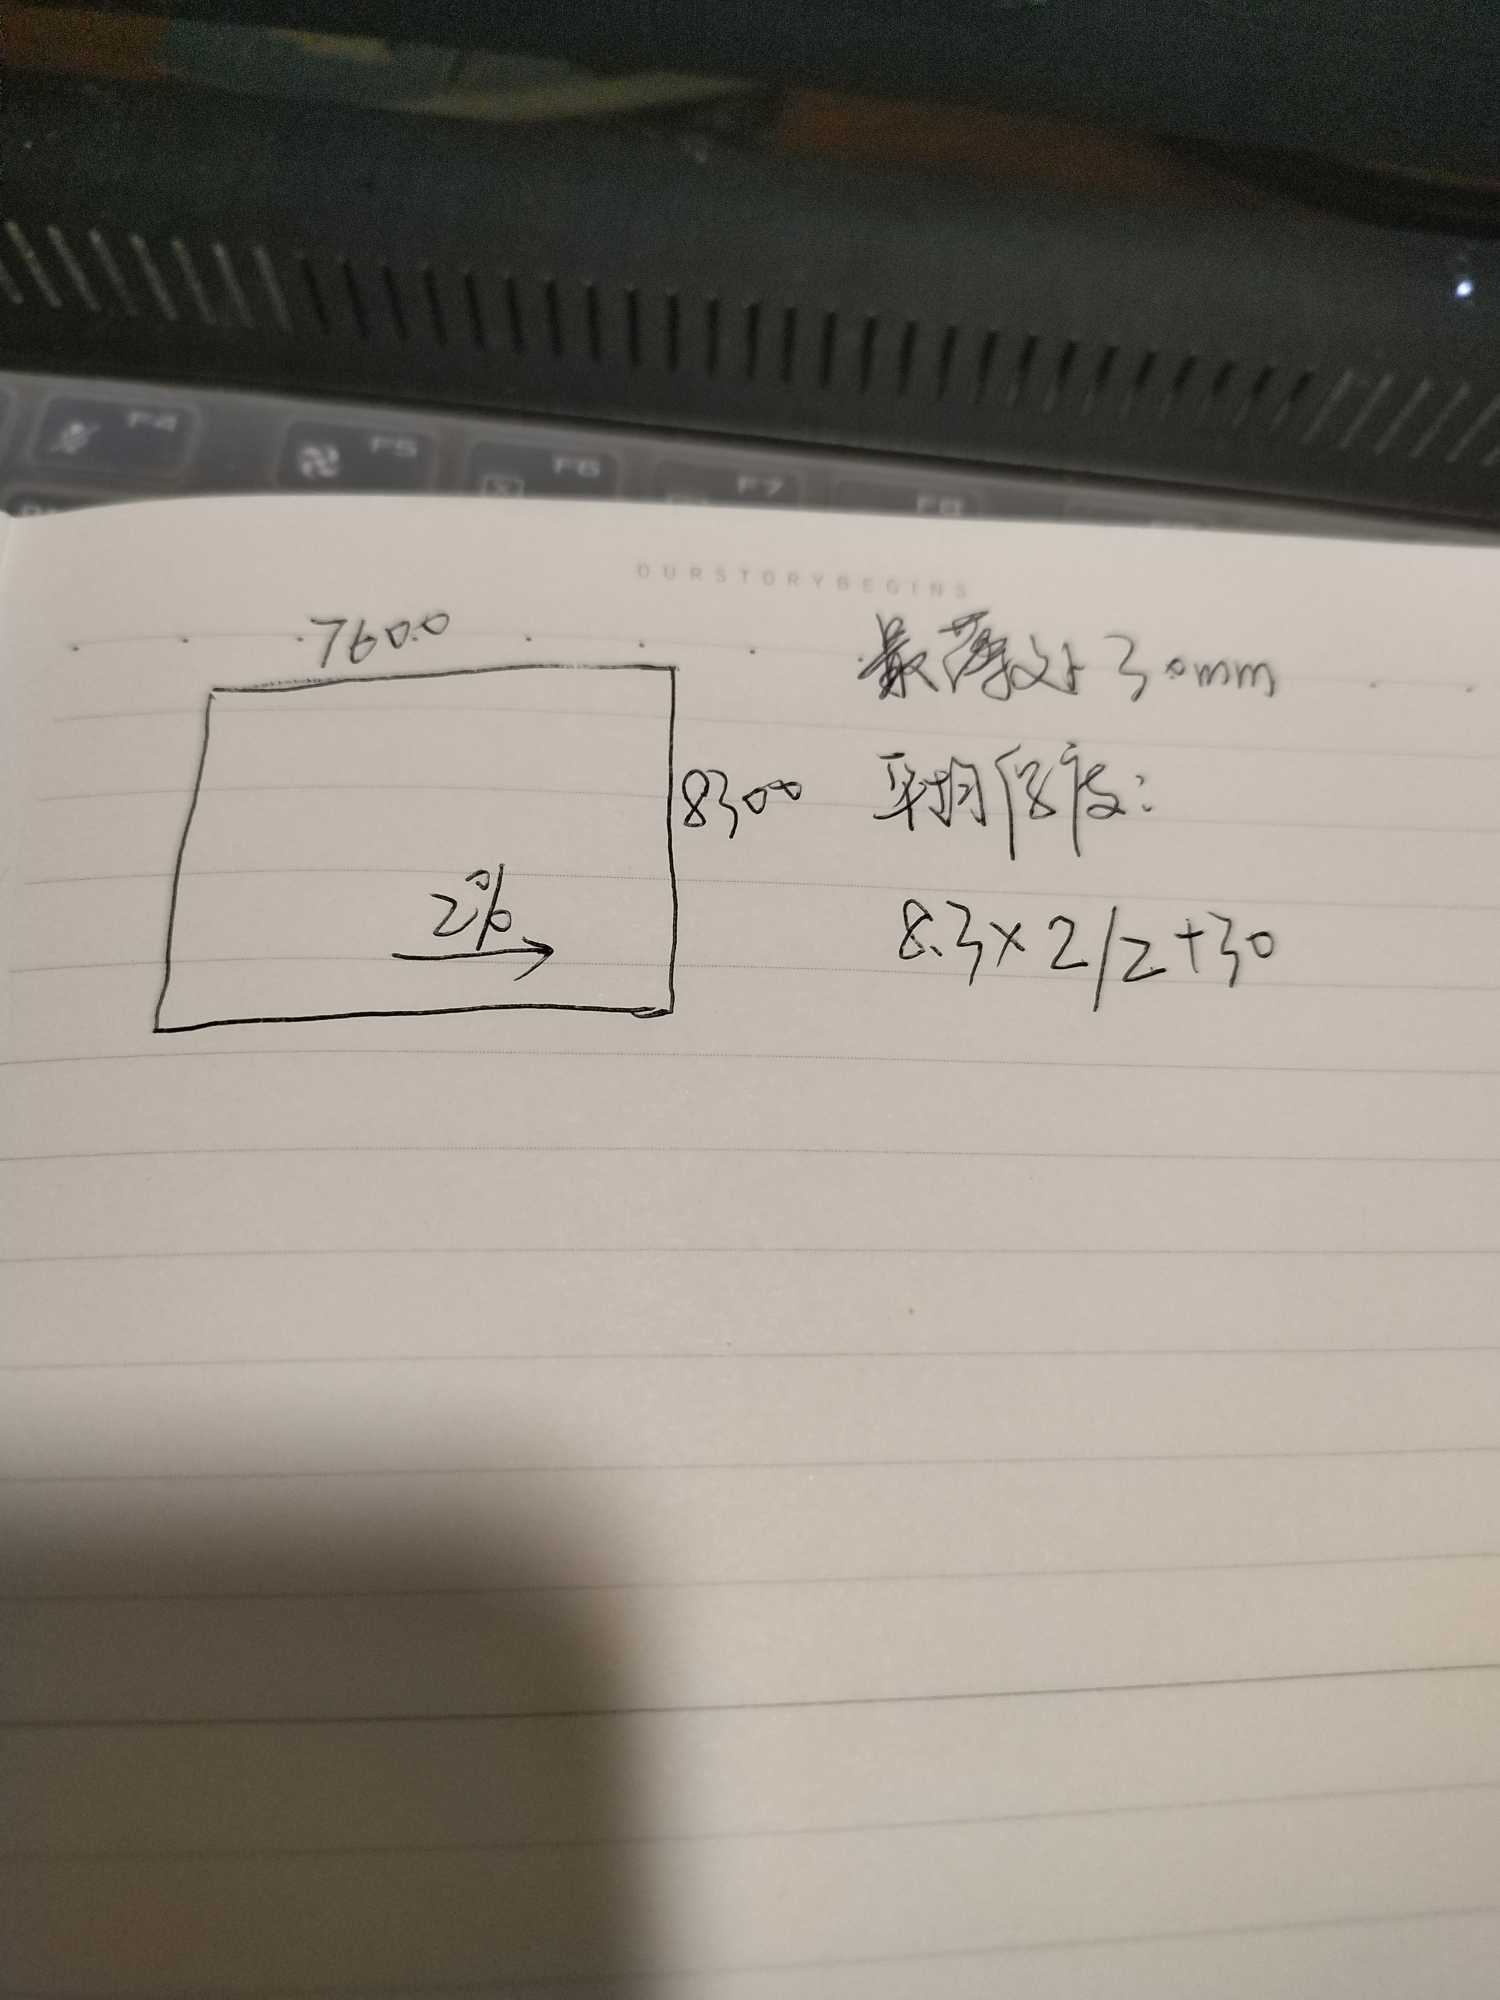 F4
F5
F6
F7
F8
OURSTORYBEGINS
7600
最薄处30mm
8300
平均厚度:
2%
8.3×2/2+30